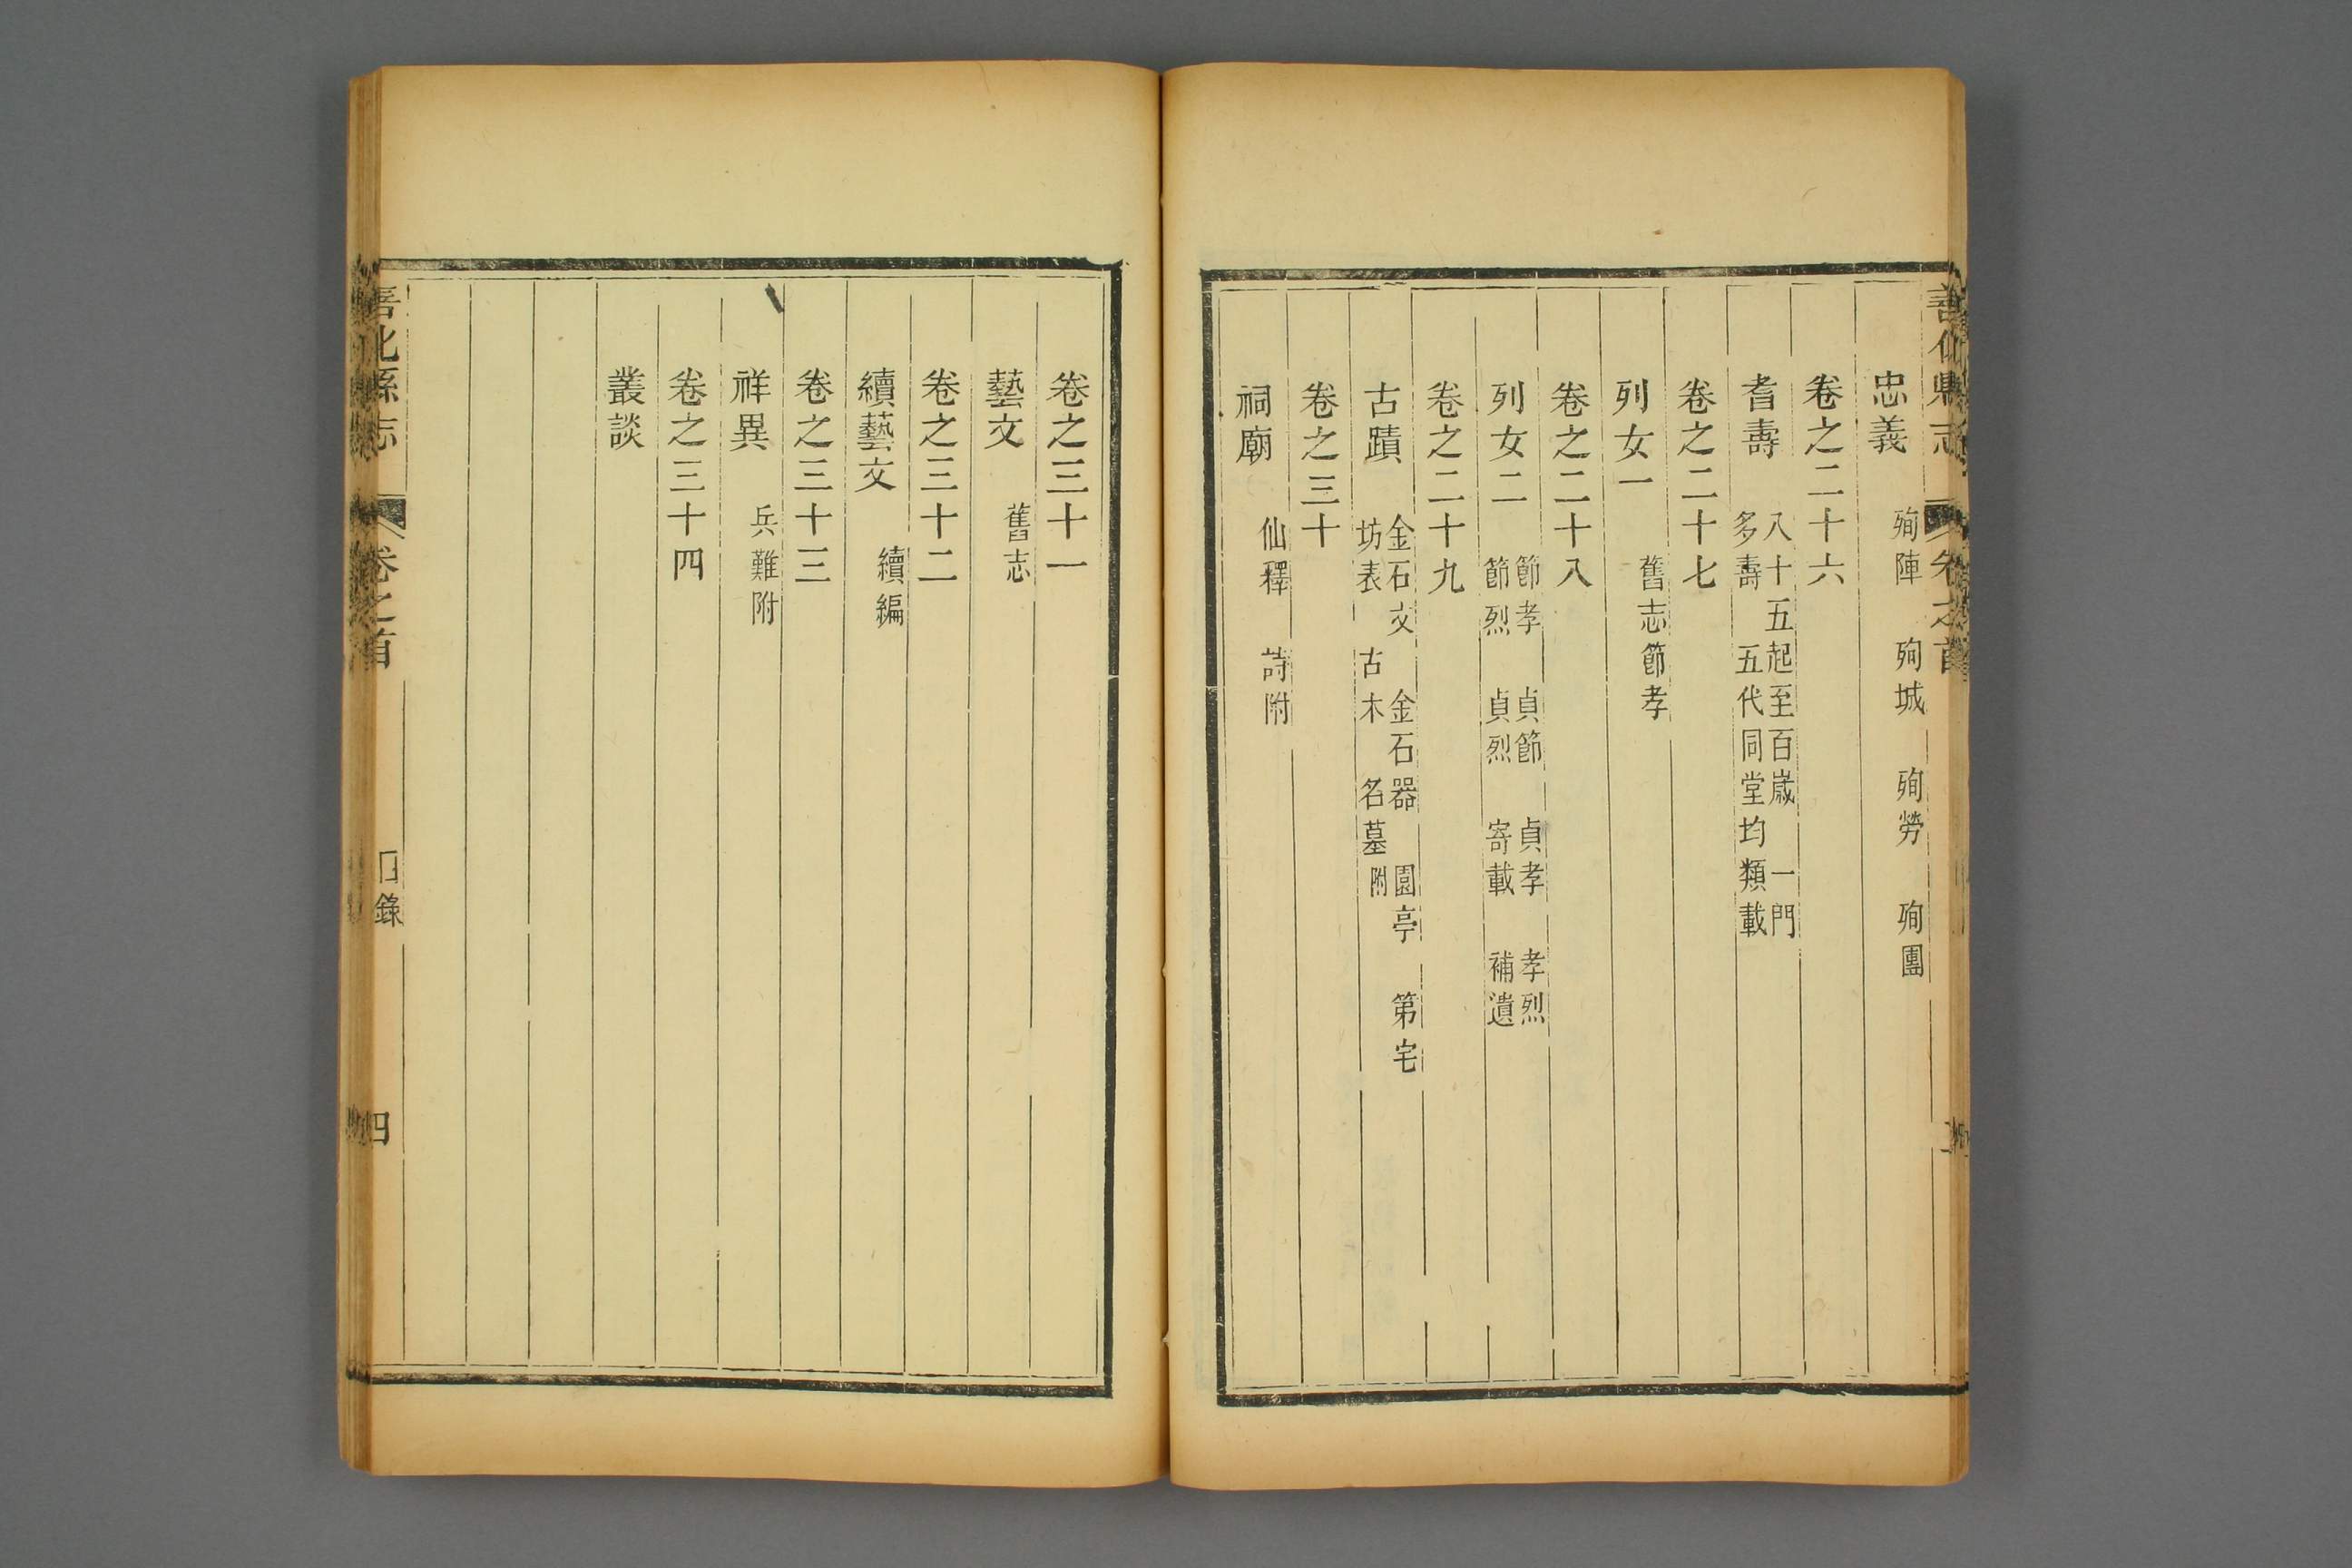 忠義 殉陣 殉城 殉勞 殉團
卷之二十六
耆壽 八十五起至百歲 一門
多壽 五代同堂均類載
卷之二十七
列女一 舊志節孝
卷之二十八
列女二 節孝 貞節 貞孝 孝烈
節烈 貞烈 寄載 補遺
卷之二十九
古蹟 金石文 金石器 園亭 第宅
坊表 古木 名墓附
卷之三十
祠廟 仙釋 詩附
卷之三十一
藝文 舊志
卷之三十二
續藝文 續編
卷之三十三
祥異 兵難附
卷之三十四
叢談
善化縣志 卷之首 目錄 四